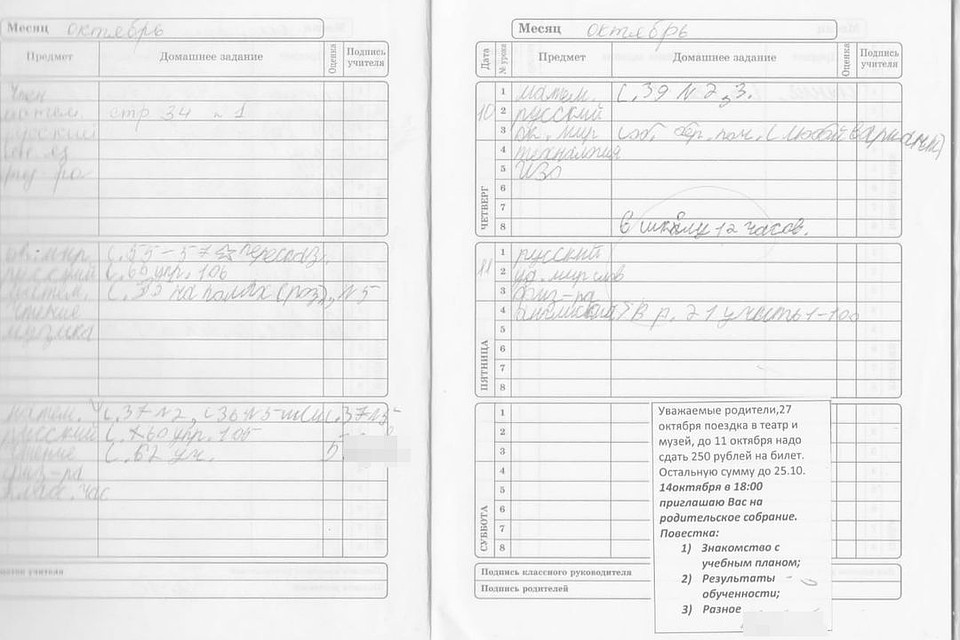 Месяц октябрь
Предмет Домашнее задание Оценка Подпись учителя
матем. стр 34 № 1
русский
физ-ра
ок. мир с.55-57 пересказ.
русский с.60 упр. 106
матем. с.33 на полях (роз), №5
чтение
музыка
матем. с.37 №2, с36 №5 с.37 №5
русский с.60 упр. 105 5.
чтение с.62 уч.
физ-ра
класс. час
Месяц октябрь
Дата № урока Предмет Домашнее задание Оценка Подпись учителя
10
ЧЕТВЕРГ
1 матем. с.39 №2,3.
2 русский
3 ок. мир
4 технология
5 ИЗО
6
7
8 В школу 12 часов.
11
ПЯТНИЦА
1 русский
2
3 физ-ра
4 английский
5
6
7
8
СУББОТА
1
2
3
4
5
6
7
8
Подпись классного руководителя
Подпись родителей
Уважаемые родители,27
октября поездка в театр и
музей, до 11 октября надо
сдать 250 рублей на билет.
Остальную сумму до 25.10.
14октября в 18:00
приглашаю Вас на
родительское собрание.
Повестка:
1) Знакомство с
учебным планом;
2) Результаты
обученности;
3) Разное